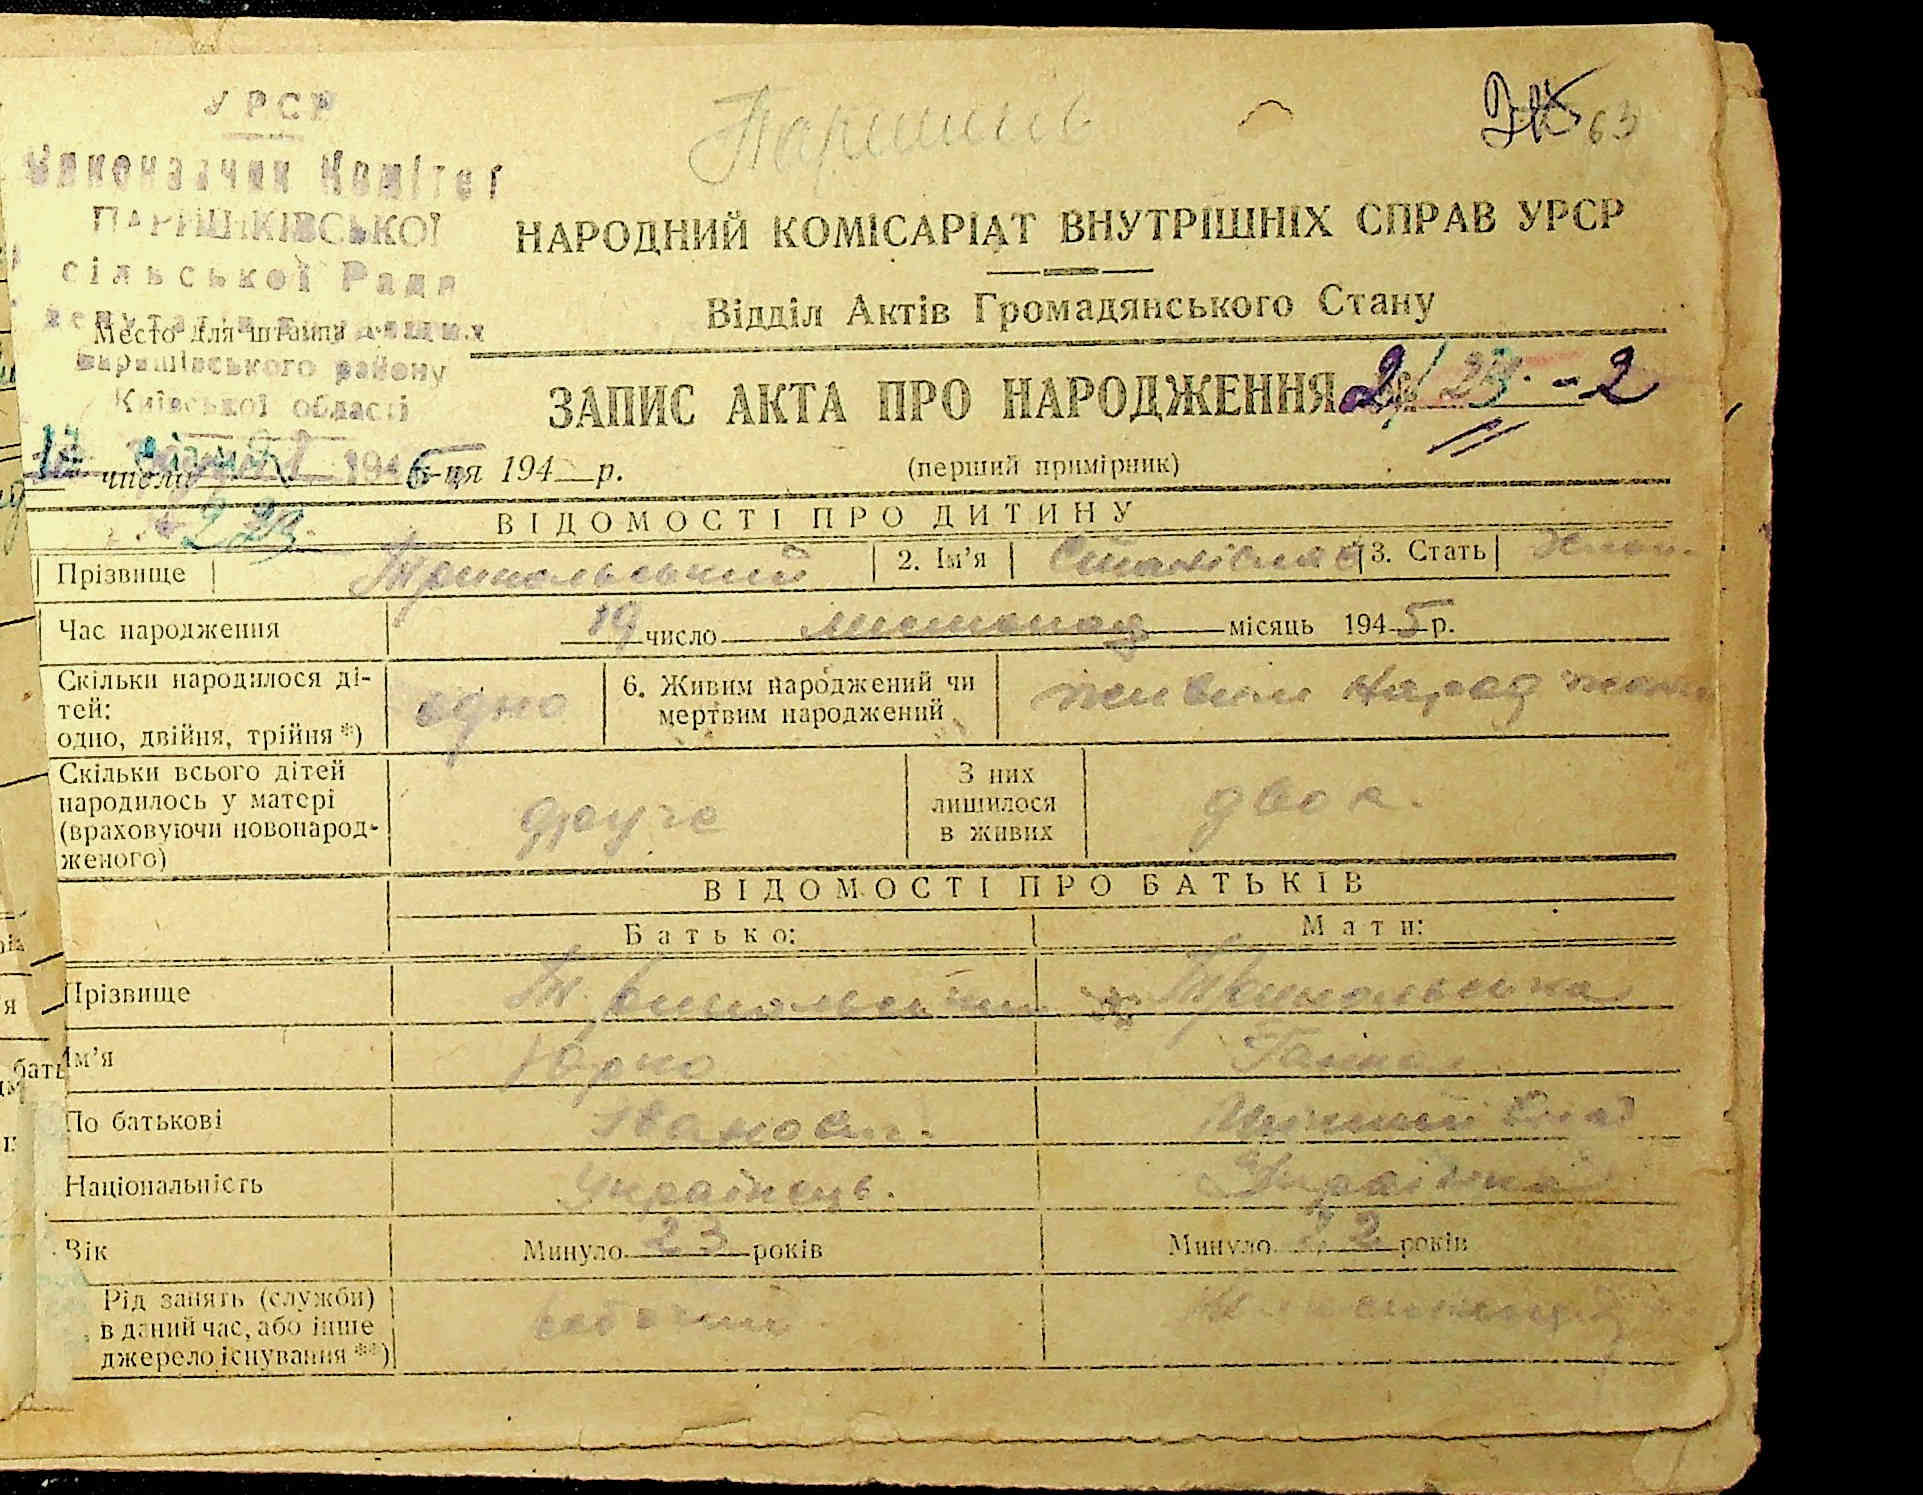 УРСР
63
Виконавчий Комітет
ПАРИШКІВСЬКОЇ
сільської Ради
депутатів трудящих
Место для штампа
Баришівського району
Київської області
НАРОДНИЙ КОМІСАРІАТ ВНУТРІШНІХ СПРАВ УРСР
Відділ Актів Громадянського Стану
ЗАПИС АКТА ПРО НАРОДЖЕННЯ 2/ 23. - 2
числа 194 6 -ця 194 р.
(перший примірник)
ВІДОМОСТІ ПРО ДИТИНУ
Прізвище Трипольський 2. Ім'я Станіслав 3. Стать
Час народження 19 число листопад місяць 1945 р.
Скільки народилося ді-
тей:
одно, двійня, трійня *) одно
6. Живим народжений чи
мертвим народжений живим народжен
Скільки всього дітей
народилось у матері
(враховуючи новонарод-
женого) друге
З них
лишилося
в живих двоє.
ВІДОМОСТІ ПРО БАТЬКІВ
Батько: Мати:
Прізвище Трипольський Трипольська
Ім'я Юрко Ганна
По батькові Іванович.
Національність Українець. Українка
Вік Минуло 23 років Минуло 22 років
Рід занять (служби)
в даний час, або інше
джерело існування **)